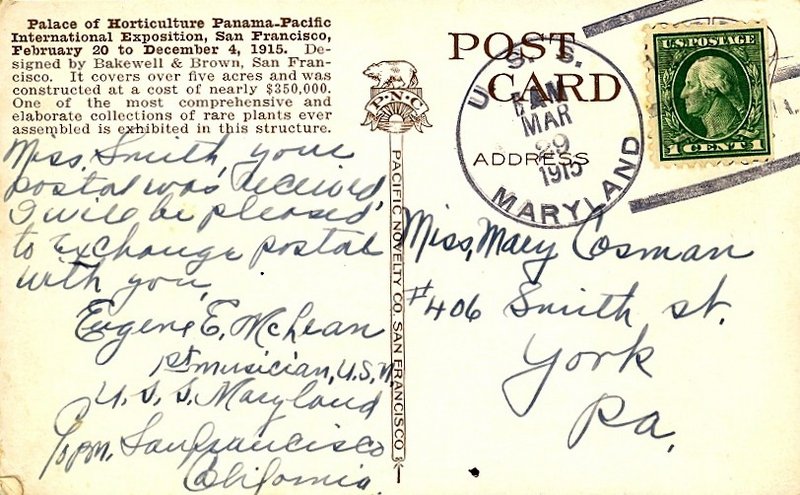 Palace of Horticulture Panama-Pacific
International Exposition, San Francisco,
February 20 to December 4, 1915. De-
signed by Bakewell & Brown, San Fran-
cisco. It covers over five acres and was
constructed at a cost of nearly $350,000.
One of the most comprehensive and
elaborate collections of rare plants ever
assembled is exhibited in this structure.
Miss, Smith, your
postal was received,
I will be pleased
to exchange postal
with you,
Eugene E, McLean
1st musician, U.S.N,
U.S.S. Maryland
San francisco
California.
P.N.C.
PACIFIC NOVELTY CO. SAN FRANCISCO
POST
CARD
ADDRESS
U.S.S.
MAR
29
1915
MARYLAND
U.S. POSTAGE
1 CENT 1
Miss, Mary Cosman
#406 Smith st.
York
Pa,